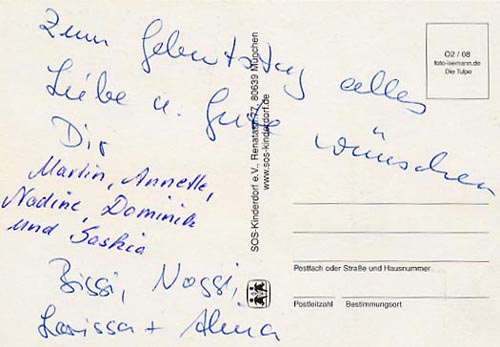 Zum Geburtstag alles
Liebe u. Gute wünschen
Dir
Martin, Annette,
Nadine, Dominik
und Saskia
Bissi, Noggi,
Larissa + Alma
SOS-Kinderdorf e.V., Renatastr. 77, 80639 München
www.sos-kinderdorf.de
O2 / 08
foto-isemann.de
Die Tulpe
Postfach oder Straße und Hausnummer
Postleitzahl Bestimmungsort